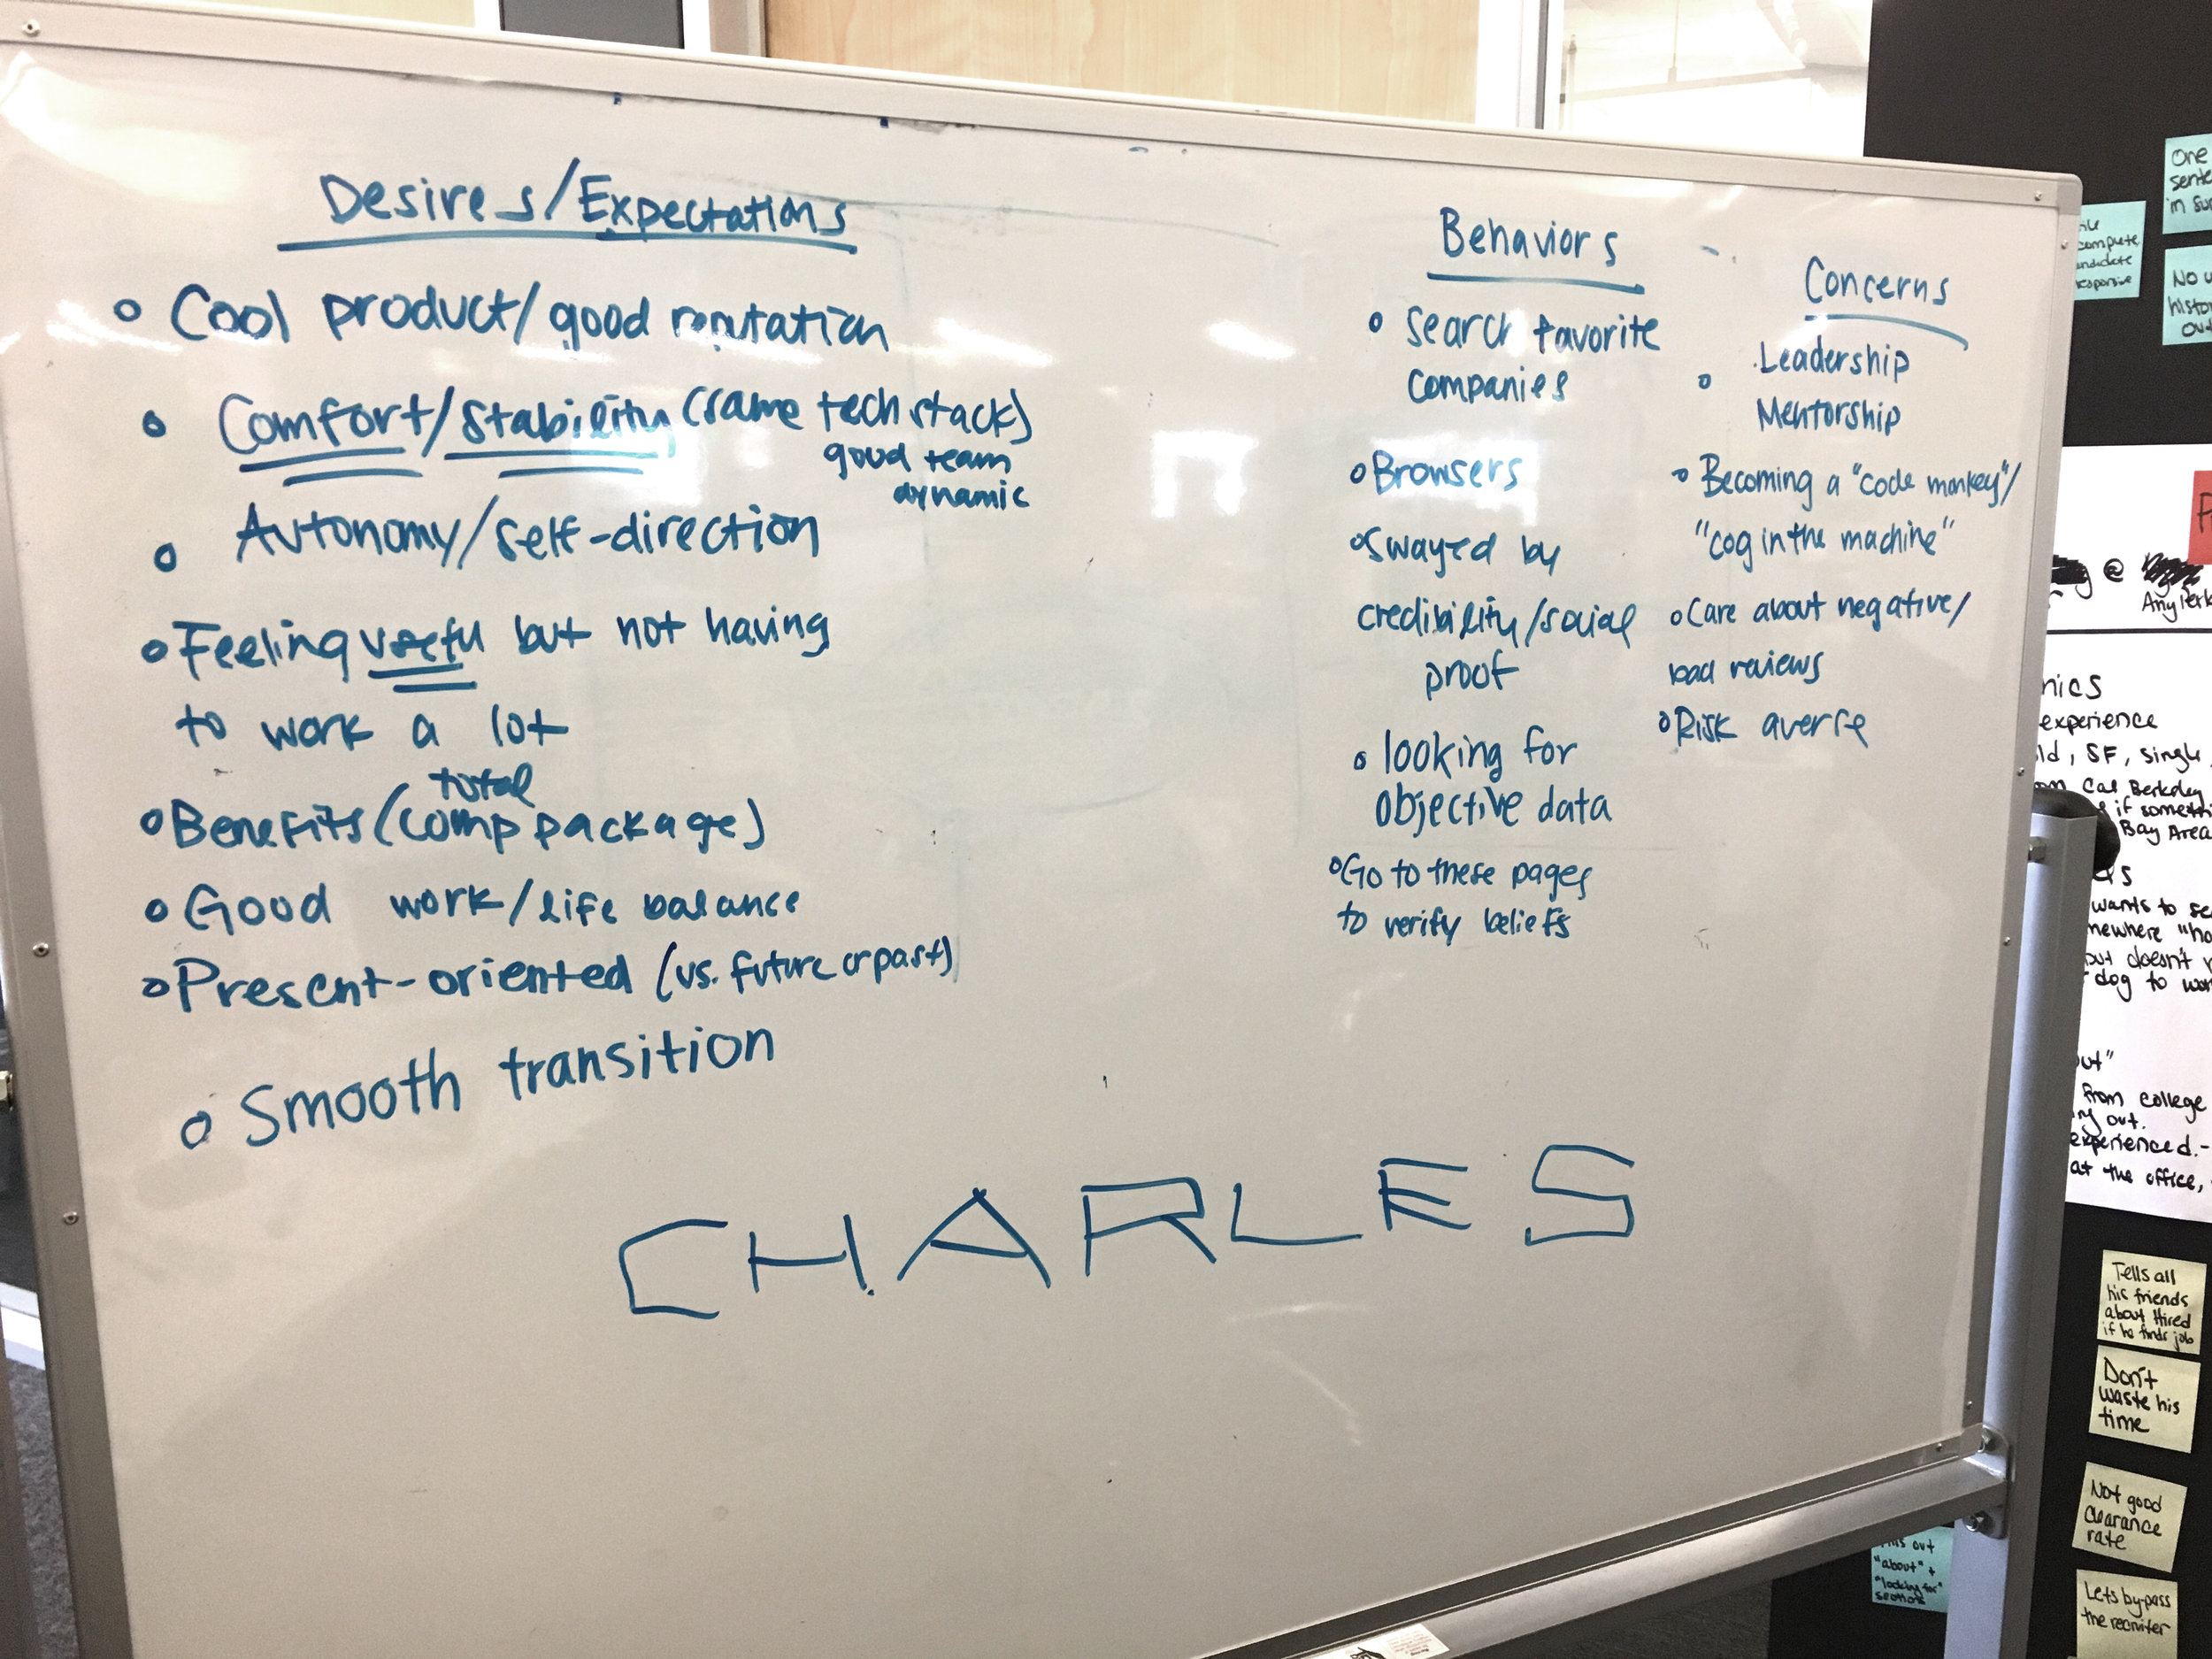 Desires/Expectations
Cool product/good reputation
Comfort/Stability (same tech stack)
good team
dynamic
Autonomy/self-direction
Feeling useful but not having
to work a lot
total
Benefits (comp package)
Good work/life balance
Present-oriented (vs. future or past)
Smooth transition
Behaviors
Search favorite
companies
Browsers
Swayed by
credibility/social
proof
looking for
objective data
Go to these pages
to verify beliefs
Concerns
Leadership
Mentorship
Becoming a "code monkey"/
"cog in the machine"
Care about negative/
bad reviews
Risk averse
CHARLES
One
in
complete
No
out
@
experience
SF, single,
Cal Berkeley
if
Bay Area
wants to
"
but doesn't
dog to
out"
from college
out.
experienced.-
at the office,
Tells all
his friends
about Hired
if he finds job
Don't
waste his
time
Not good
Clearance
rate
out
"about" +
"looking for"
sections
Lets bypass
the recruiter